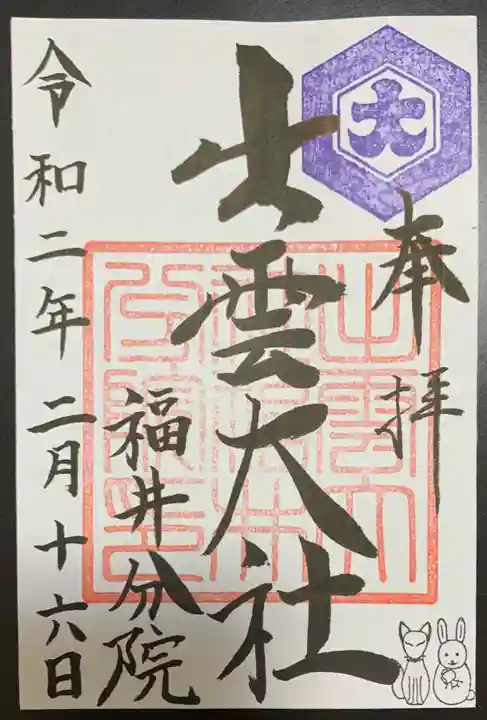 奉拝
大
出雲大社
福井分院
令和二年二月十六日